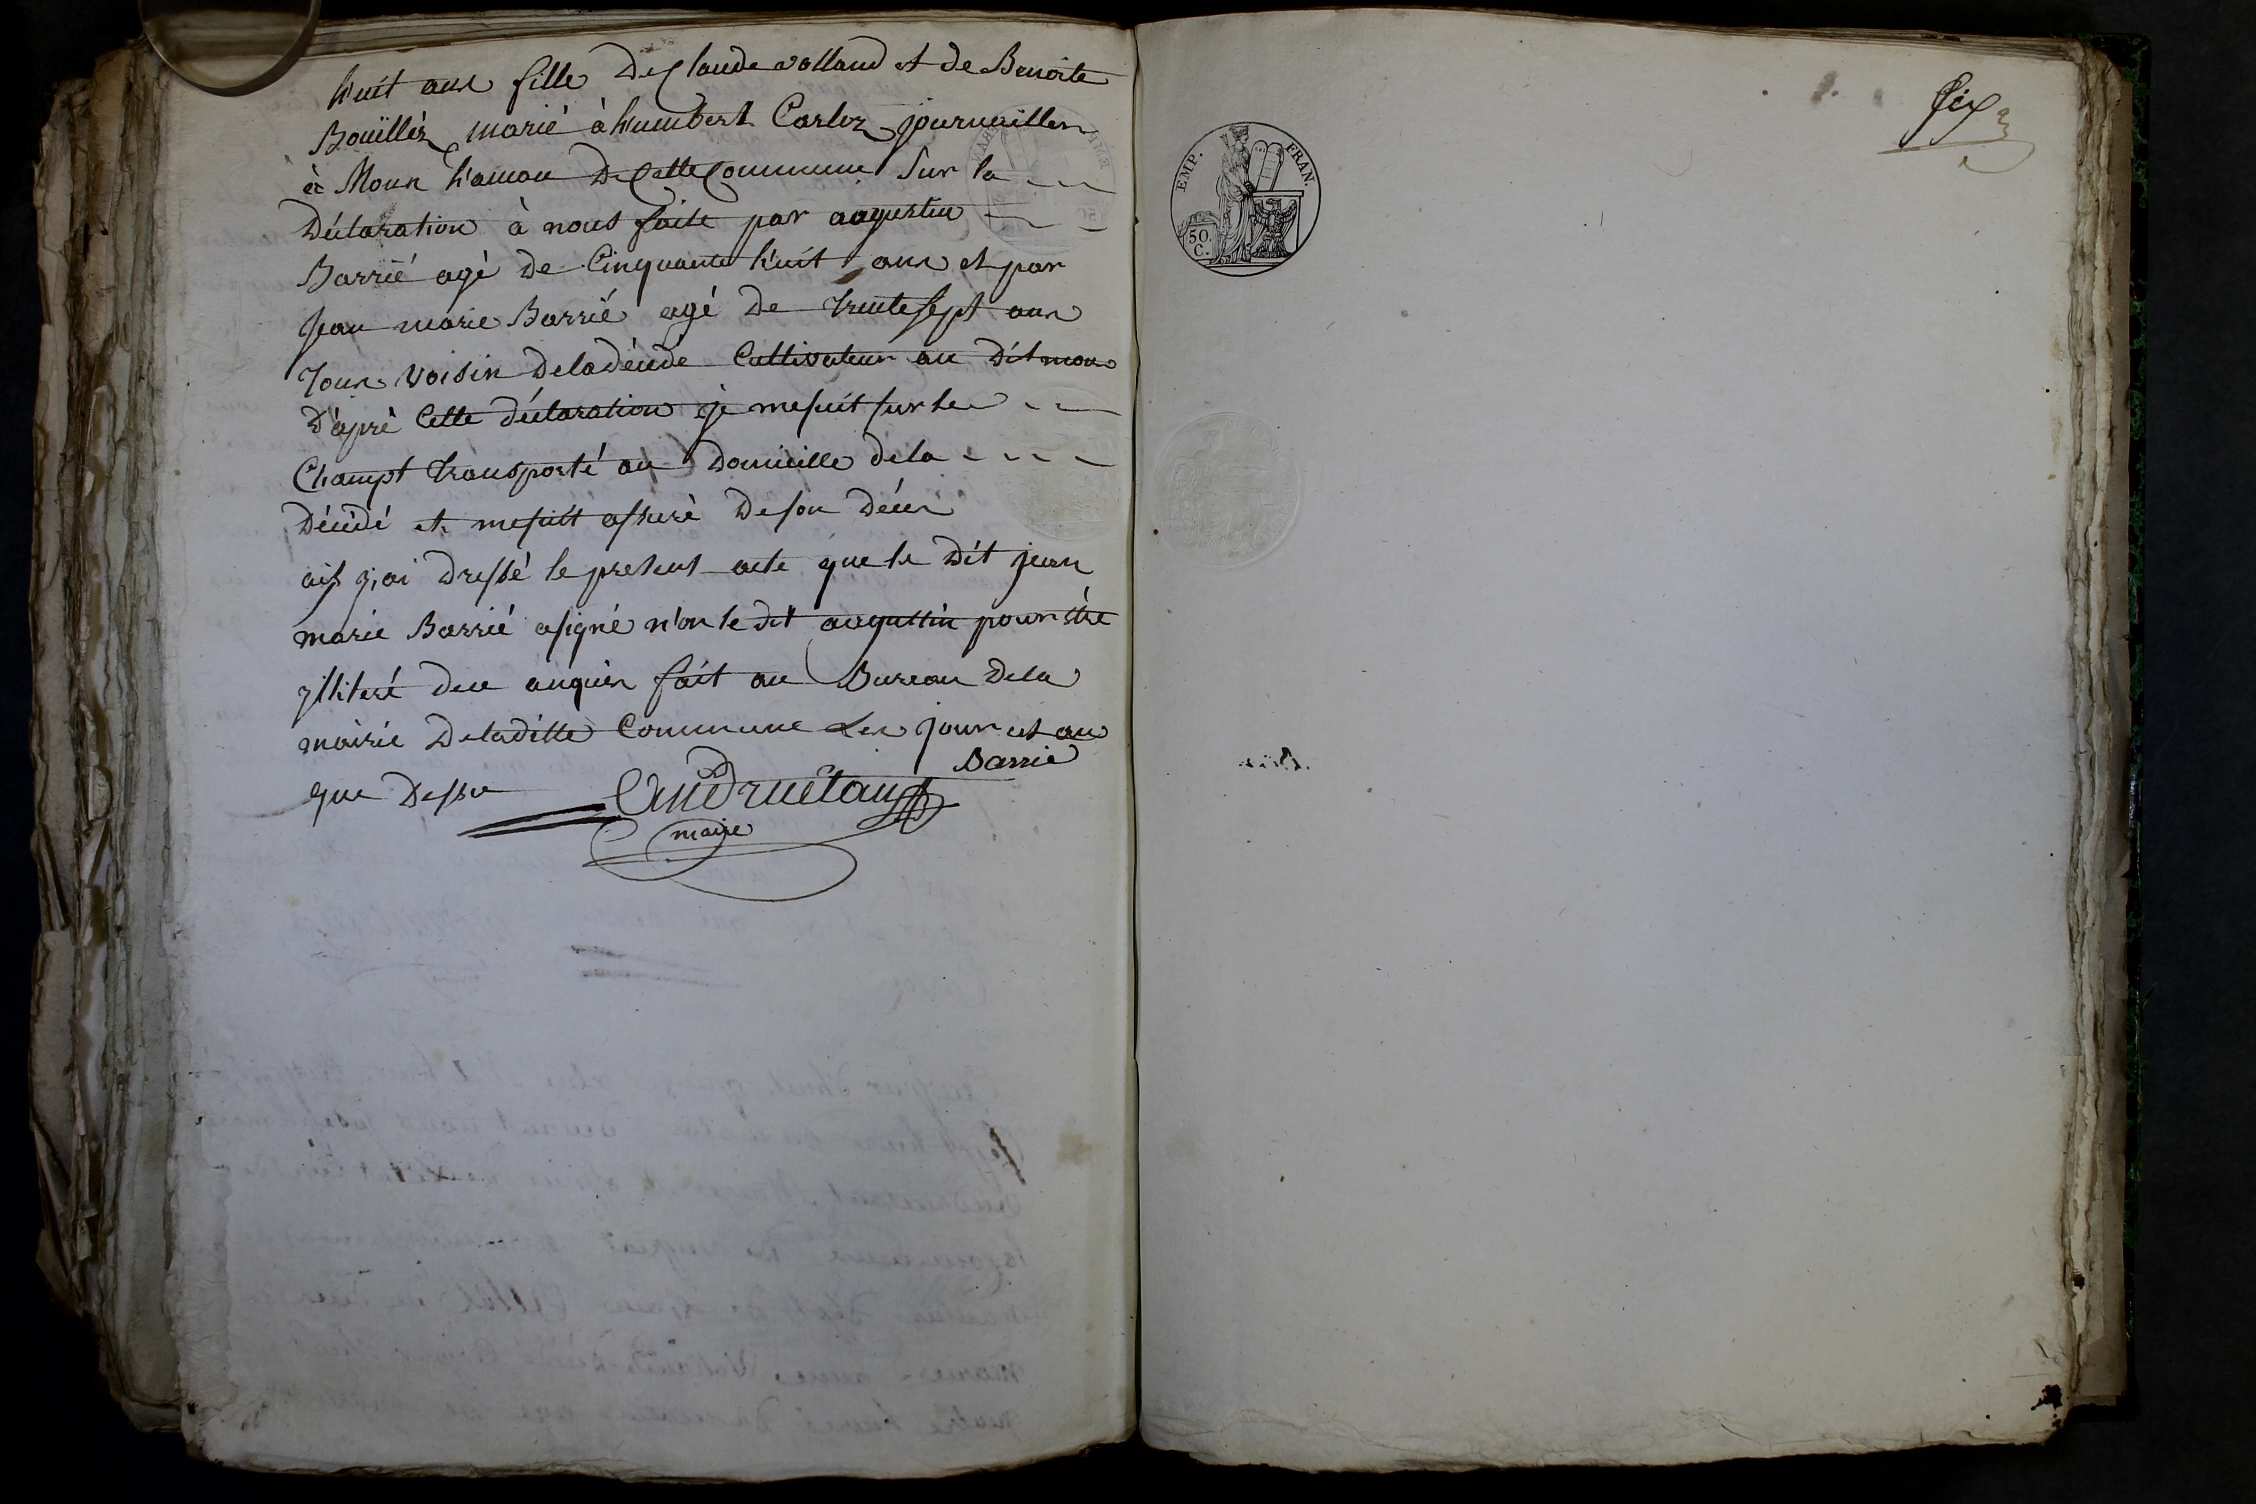 huit ans fille De Claude volland et de Benoite
Bouïllér marié à humbert Carloz journaillier
à Moux hamau De Cette Commune Sur la
Déclaration à nous faite par augustin
Barrié agé de Cinquante huit ans et par
Jean marie Barrié agé de trente sept ans
Tous Voisin dela décédé Cultivateur au Dit moux
D'apré Cette déclaration je me suit sur le
Champt transporté au Domicille de la
Décédé et me suit assuré De son décés
aist j'ai Dressé le present acte que le Dit jean
marie Barrié a signé n'on le dit augustin pour être
illiteré de ce anquis fait au Bureau de la
mairie De la ditte Commune Les jour et an
que Dessu
Barrié
maire
Six
EMP. FRAN.
50. C.